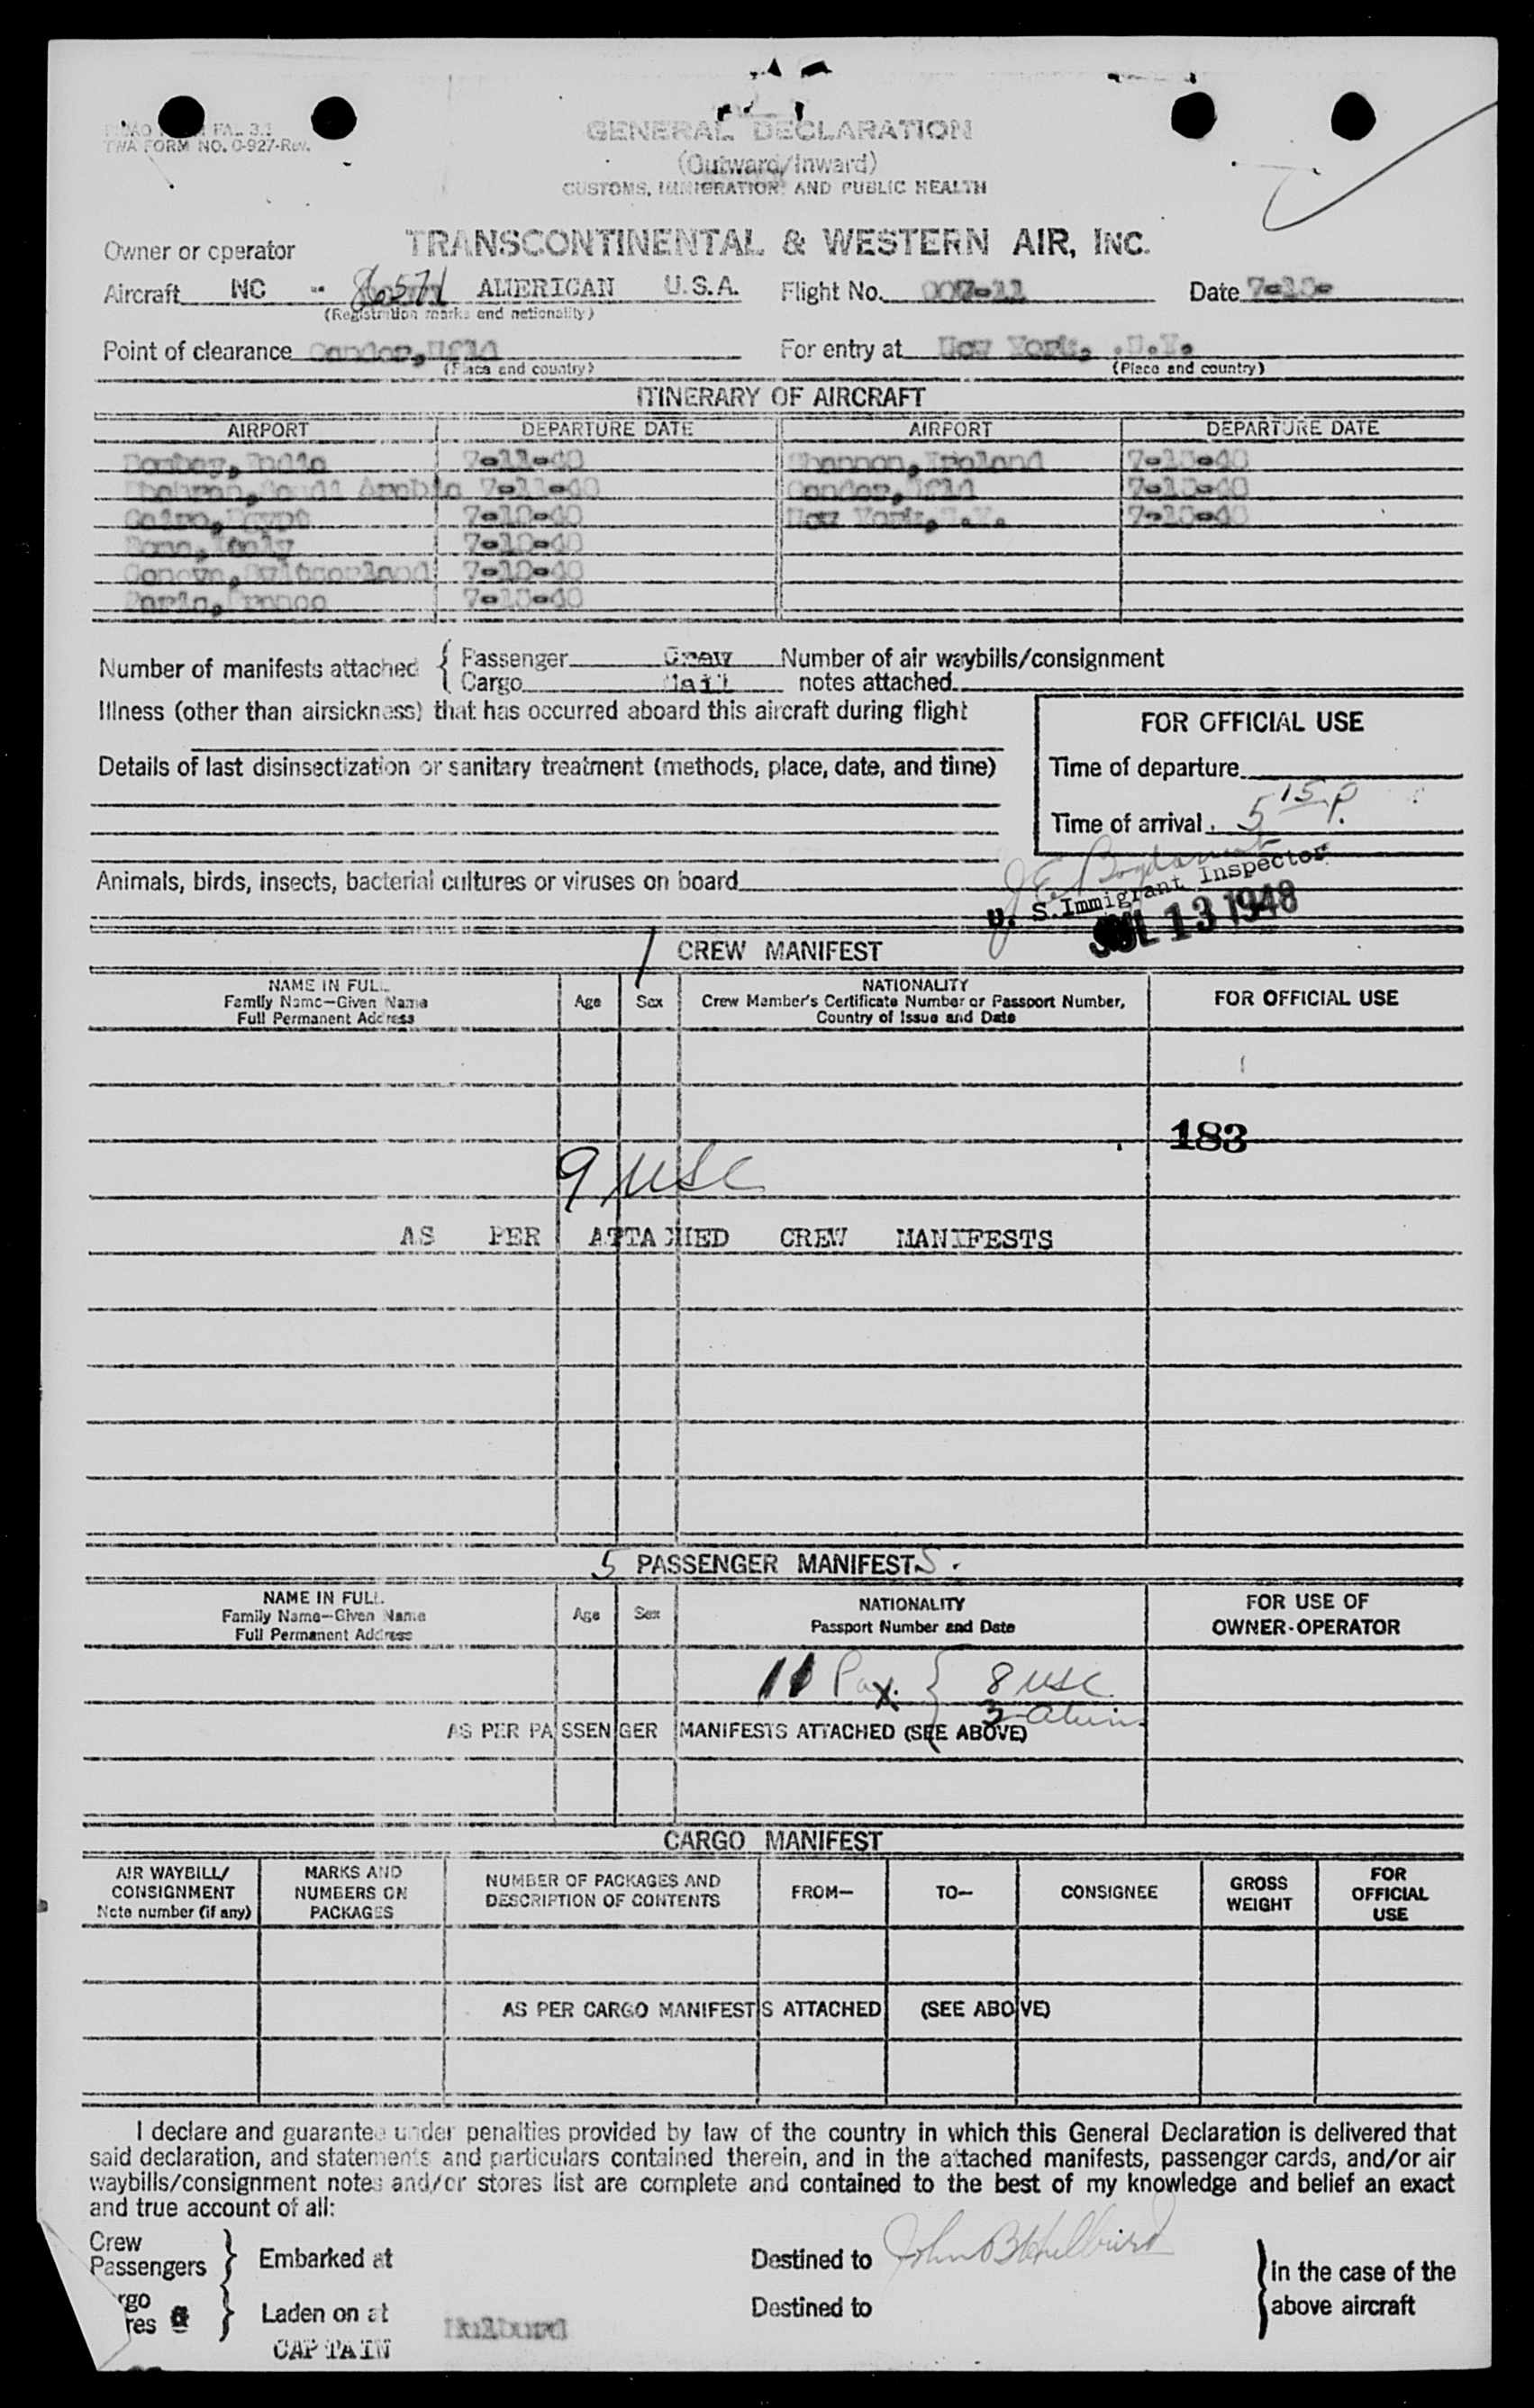 FAL 3.1
TWA FORM NO. O-927-Rev.
GENERAL DECLARATION
(Outward/Inward)
CUSTOMS, IMMIGRATION AND PUBLIC HEALTH
Owner or operator TRANSCONTINENTAL & WESTERN AIR, INC.
Aircraft NC - 86571 AMERICAN U.S.A. Flight No. Date
(Registration marks and nationality)
Point of clearance Gander, Nfld For entry at New York, N.Y.
(Place and country) (Place and country)
ITINERARY OF AIRCRAFT
AIRPORT DEPARTURE DATE AIRPORT DEPARTURE DATE
Bombay, India 7-11-48 Shannon, Ireland 7-13-48
Dhahran, Saudi Arabia 7-11-48 Gander, Nfld 7-13-48
Cairo, Egypt 7-12-48 New York, N.Y. 7-13-48
Rome, Italy 7-12-48
Geneva, Switzerland 7-12-48
Paris, France 7-13-48
Number of manifests attached { Passenger Crew Number of air waybills/consignment
Cargo Mail notes attached
Illness (other than airsickness) that has occurred aboard this aircraft during flight
FOR OFFICIAL USE
Details of last disinsectization or sanitary treatment (methods, place, date, and time)
Time of departure
Time of arrival 5 15 P.
Animals, birds, insects, bacterial cultures or viruses on board
U. S. Immigrant Inspector
JUL 13 1948
1 CREW MANIFEST
NAME IN FULL
Family Name—Given Name
Full Permanent Address
Age Sex
NATIONALITY
Crew Member's Certificate Number or Passport Number,
Country of Issue and Date
FOR OFFICIAL USE
183
9 USC
AS PER ATTACHED CREW MANIFESTS
5 PASSENGER MANIFESTS.
NAME IN FULL
Family Name—Given Name
Full Permanent Address
Age Sex
NATIONALITY
Passport Number and Date
FOR USE OF
OWNER-OPERATOR
11 Pax. { 8 USC
3 aliens
AS PER PASSENGER MANIFESTS ATTACHED (SEE ABOVE)
CARGO MANIFEST
AIR WAYBILL/
CONSIGNMENT
Note number (if any)
MARKS AND
NUMBERS ON
PACKAGES
NUMBER OF PACKAGES AND
DESCRIPTION OF CONTENTS
FROM—
TO—
CONSIGNEE
GROSS
WEIGHT
FOR
OFFICIAL
USE
AS PER CARGO MANIFESTS ATTACHED (SEE ABOVE)
I declare and guarantee under penalties provided by law of the country in which this General Declaration is delivered that
said declaration, and statements and particulars contained therein, and in the attached manifests, passenger cards, and/or air
waybills/consignment notes and/or stores list are complete and contained to the best of my knowledge and belief an exact
and true account of all:
Crew
Passengers } Embarked at Destined to } in the case of the
rgo
res } Laden on at Destined to above aircraft
CAPTAIN Hulburd